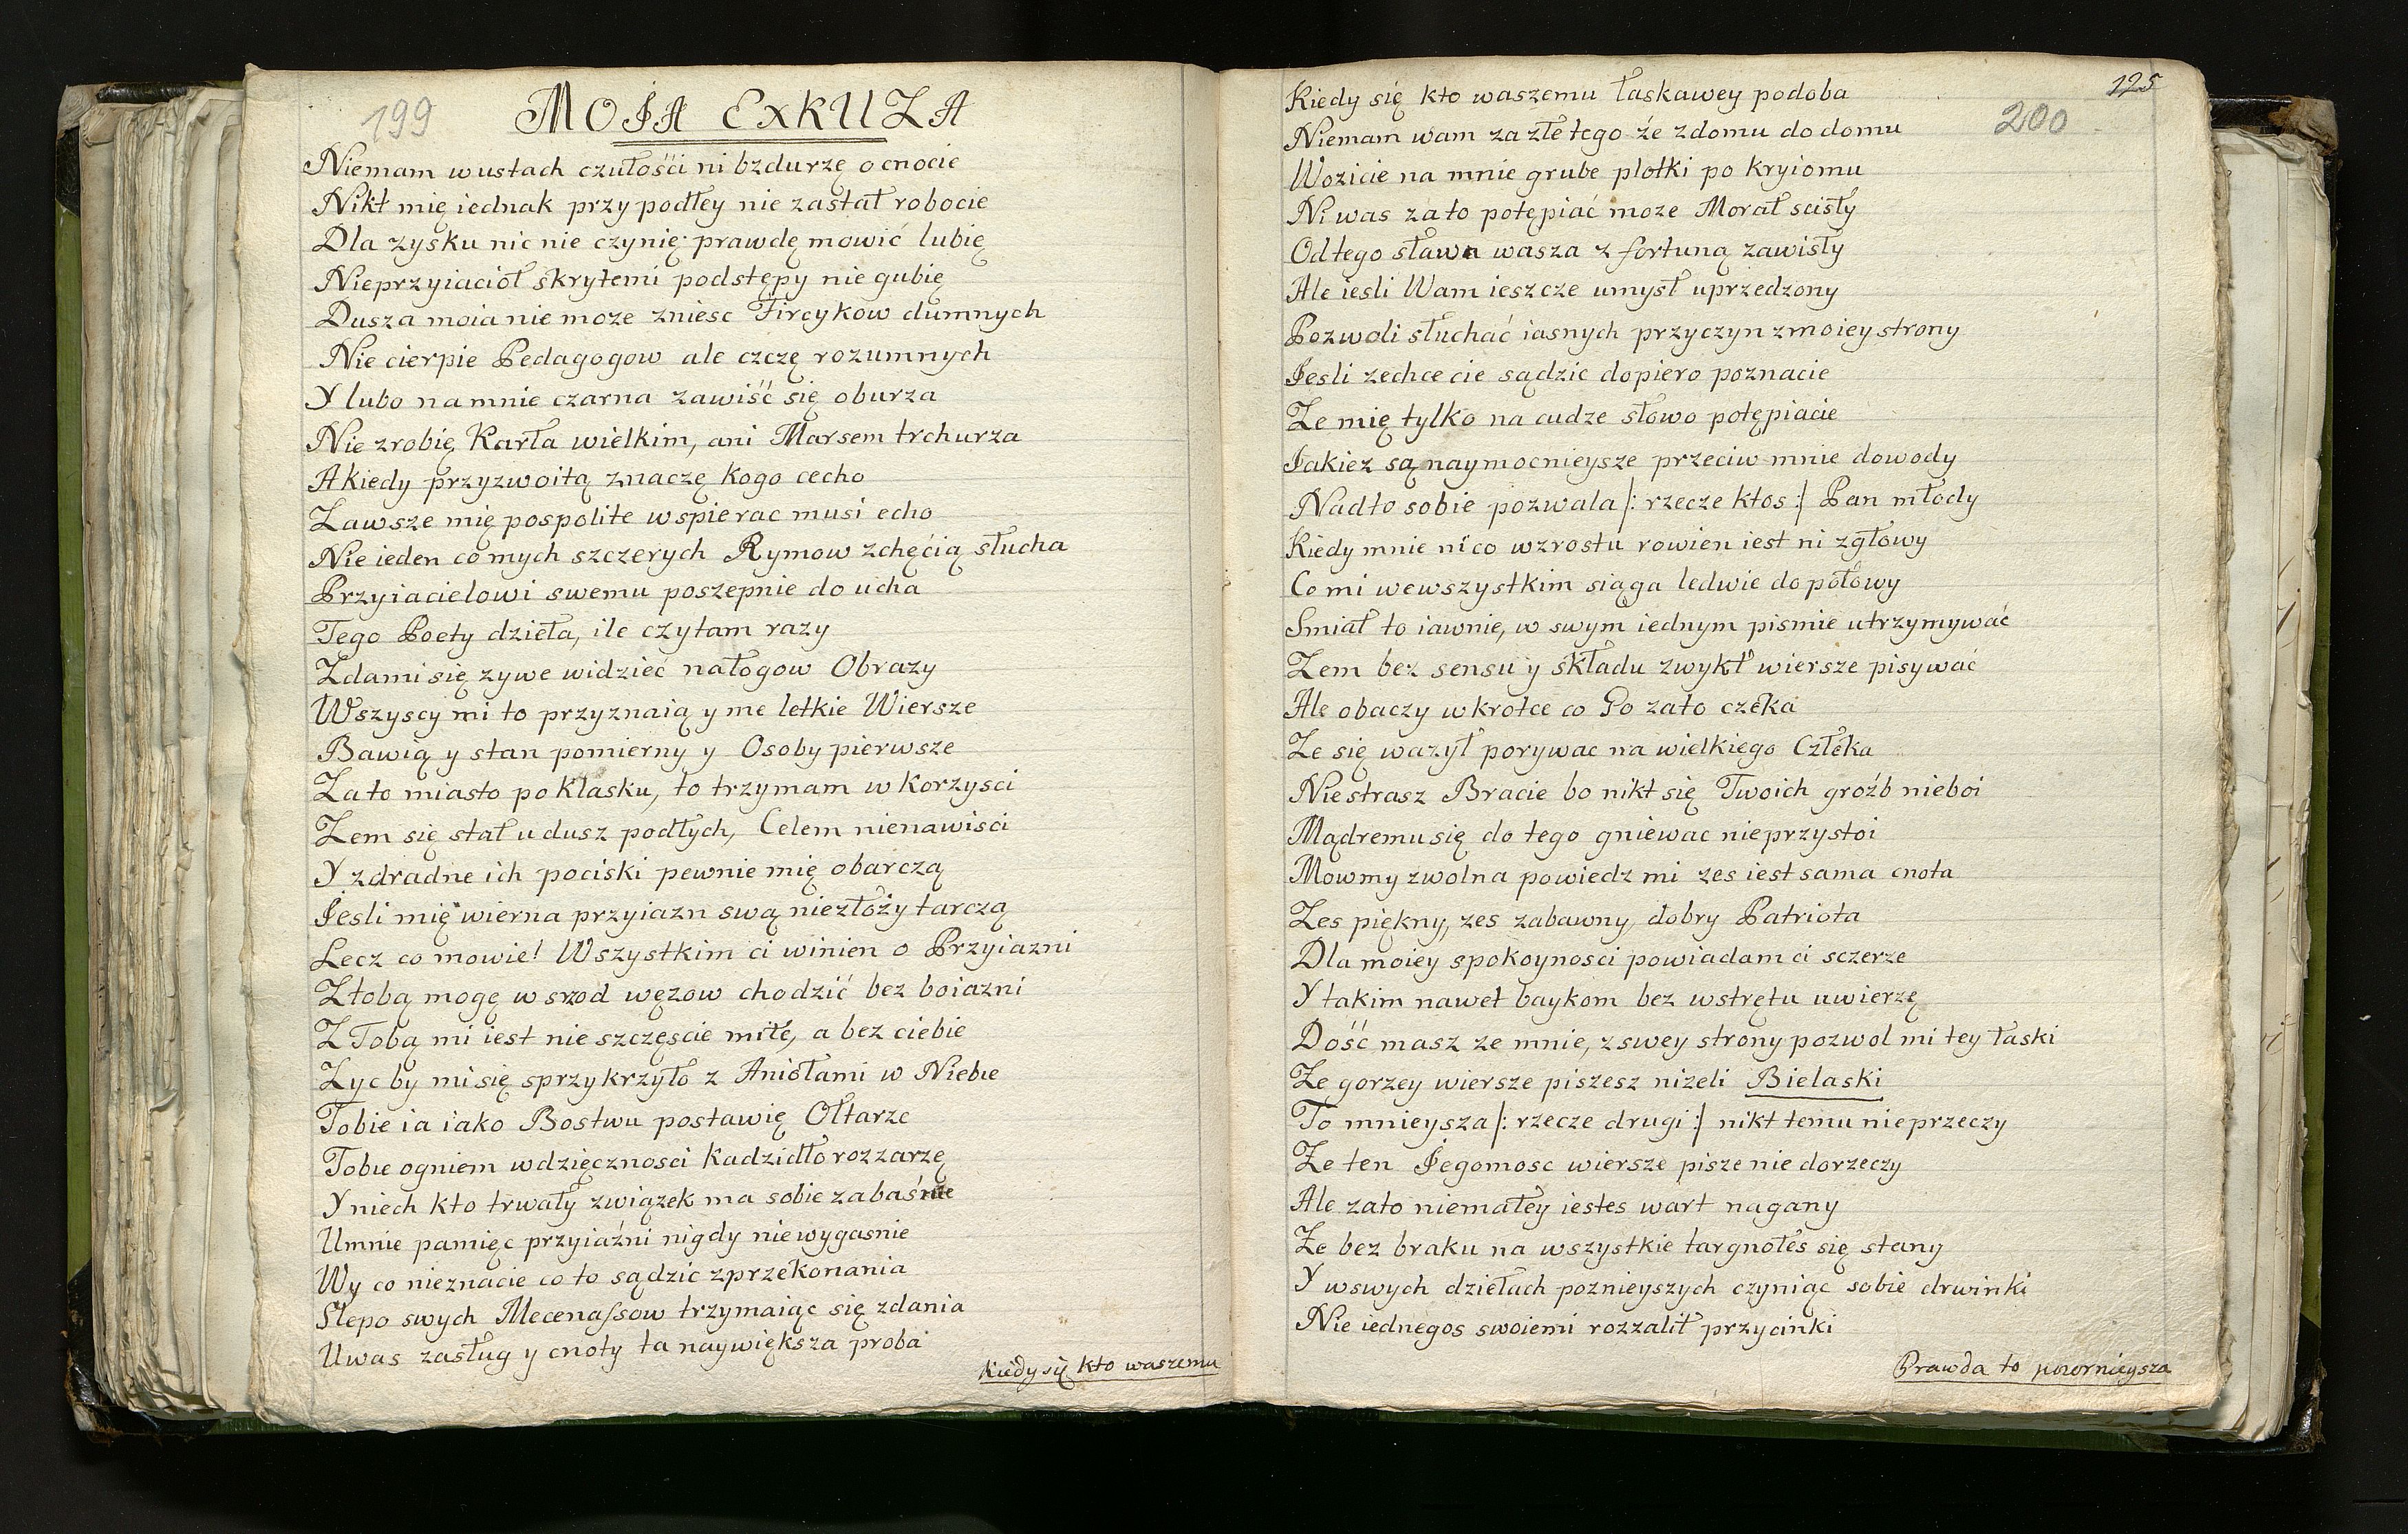 199
MOJA EXKUZA
Niemam w ustach czułości ni bzdurzę o cnocie
Nikt mię iednak przy podłey nie zastał robocie
Dla zysku nic nie czynię prawdę mowić lubię
Nieprzyiaciół skrytemi podstępy nie gubię
Dusza moia nie moze zniesc Fircykow dumnych
Nie cierpie Pedagogow ale czczę rozumnych
Y lubo na mnie czarna zawiść się oburza
Nie zrobię Karła wielkim, ani Marsem trchurza
A kiedy przyzwoitą znaczę kogo cecho
Zawsze mię pospolite wspierac musi echo
Nie ieden co mych szczerych Rymow z chęcią słucha
Przyiacielowi swemu poszepnie do ucha
Tego Poety dzieła, ile czytam razy
Zdami się zywe widzieć nałogow Obrazy
Wszyscy mi to przyznaią y me letkie Wiersze
Bawią y stan pomierny y Osoby pierwsze
Za to miasto poklasku, to trzymam w korzysci
Zem się stał u dusz podłych, Celem nienawisci
Y zdradne ich pociski pewnie mię obarczą
Jesli mię wierna przyiazn swą niezłoży tarczą
Lecz co mowie! Wszystkim ci winien o Przyiazni
Z tobą mogę w srzod węzow chodzić bez boiazni
Z Tobą mi iest nie szczęscie miłe, a bez ciebie
Zyc by mi się sprzykrzyło z Aniołami w Niebie
Tobie ia iako Bostwu postawię Ołtarze
Tobie ogniem wdzięcznosci kadzidło rozzarzę
Y niech kto trwały związek ma sobie za baśnie
U mnie pamięc przyiaźni nigdy nie wygasnie
Wy co nieznacie co to sądzic z przekonania
Slepo swych Mecenassow trzymaiąc się zdania
U was zasług y cnoty ta naywiększa proba
Kiedy się kto waszemu
125
200
Kiedy się kto waszemu łaskawey podoba
Niemam wam za złe tego że z domu do domu
Wozicie na mnie grube plotki po kryiomu
Ni was za to potępiać moze Morał scisły
Od tego sława wasza z fortuną zawisły
Ale iesli Wam ieszcze umysł uprzedzony
Pozwoli słuchać iasnych przyczyn z moiey strony
Jesli zechcecie sądzic dopiero poznacie
Ze mię tylko na cudze słowo potępiacie
Jakiez są naymocnieysze przeciw mnie dowody
Nadto sobie pozwala |: rzecze ktos :| Pan młody
Kiedy mnie ni co wzrostu rowien iest ni z głowy
Co mi we wszystkim siąga ledwie do połowy
Smiał to iawnie, w swym iednym pismie utrzymywać
Zem bez sensu y składu zwykł wiersze pisywać
Ale obaczy w krotce co Go za to czeka
Ze się wazył porywac na wielkiego Człeka
Nie strasz Bracie bo nikt się Twoich groźb nieboi
Mądremu się do tego gniewac nie przystoi
Mowmy zwolna powiedz mi zes iest sama cnota
Zes piękny, zes zabawny, dobry Patriota
Dla moiey spokoynosci powiadam ci sczerze
Y takim nawet baykom bez wstrętu uwierzę
Dość masz ze mnie, z swey strony pozwol mi tey łaski
Ze gorzey wiersze piszesz nizeli Bielaski
To mnieysza |: rzecze drugi :| nikt temu nieprzeczy
Ze ten Jegomosc wiersze pisze nie dorzeczy
Ale za to niemałey iestes wart nagany
Ze bez braku na wszystkie targnołes się stany
Y w swych dziełach poznieyszych czyniąc sobie drwinki
Nie iednegos swoiemi rozzalił przycinki
Prawda to pozornieysza